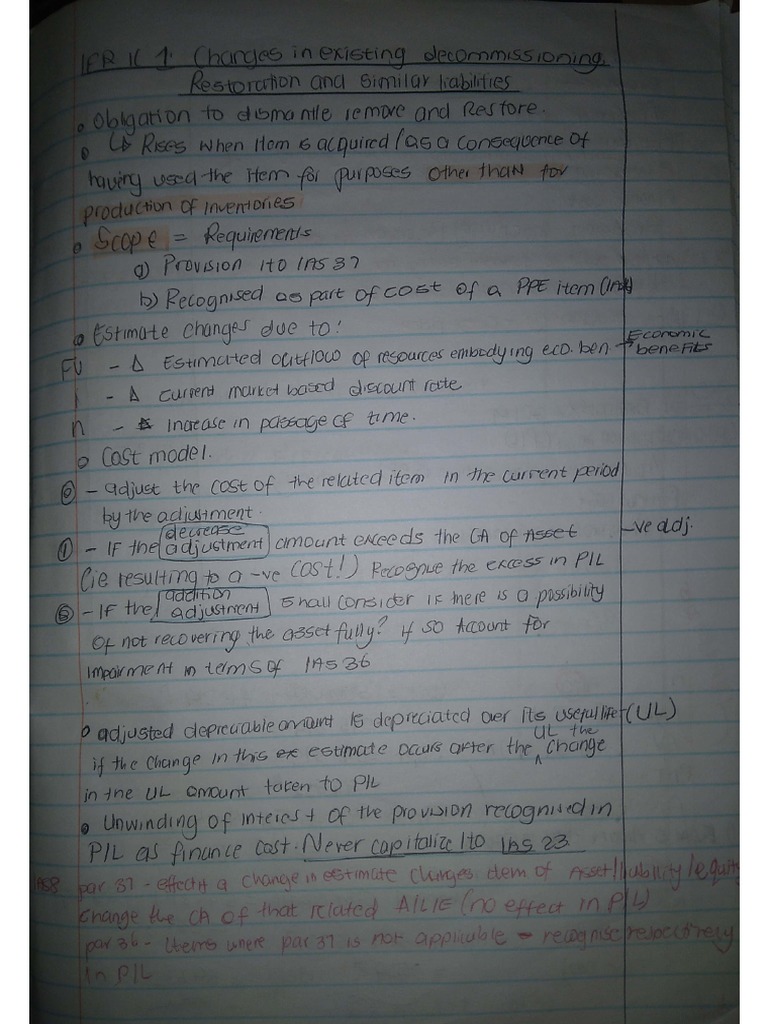 IFRIC 1: Changes in existing decommissioning,
Restoration and Similar liabilities
• Obligation to dismantle remove and Restore.
• ↳ Rises when item is acquired / as a consequence of
having used the item for purposes other than for
production of inventories
• Scope = Requirements
a) Provision ito IAS 37
b) Recognised as part of cost of a PPE item
• Estimate changes due to:
FV - Δ Estimated outflow of resources embodying eco. ben. → Economic benefits
i - Δ Current market based discount rate
n - Increase in passage of time.
• Cost model.
- adjust the cost of the related item in the current period
by the adjustment.
① - IF the decrease adjustment amount exceeds the CA of Asset -ve adj.
(ie resulting to a -ve cost!) Recognise the excess in P/L
- IF the addition adjustment shall consider if there is a possibility
of not recovering the asset fully? if so Account for
impairment in terms of IAS 36
• adjusted depreciable amount is depreciated over its useful life (UL)
if the change in this estimate occurs after the UL the change
in the UL amount taken to P/L
• Unwinding of interest of the provision recognised in
P/L as finance cost. Never capitalize ito IAS 23.
IAS8 par 37 - effect if a change in estimate changes item of Asset/liability/equity
change the CA of that related A/L/E (no effect in P/L)
par 36 - Items where par 37 is not applicable - recognise respectively
in P/L